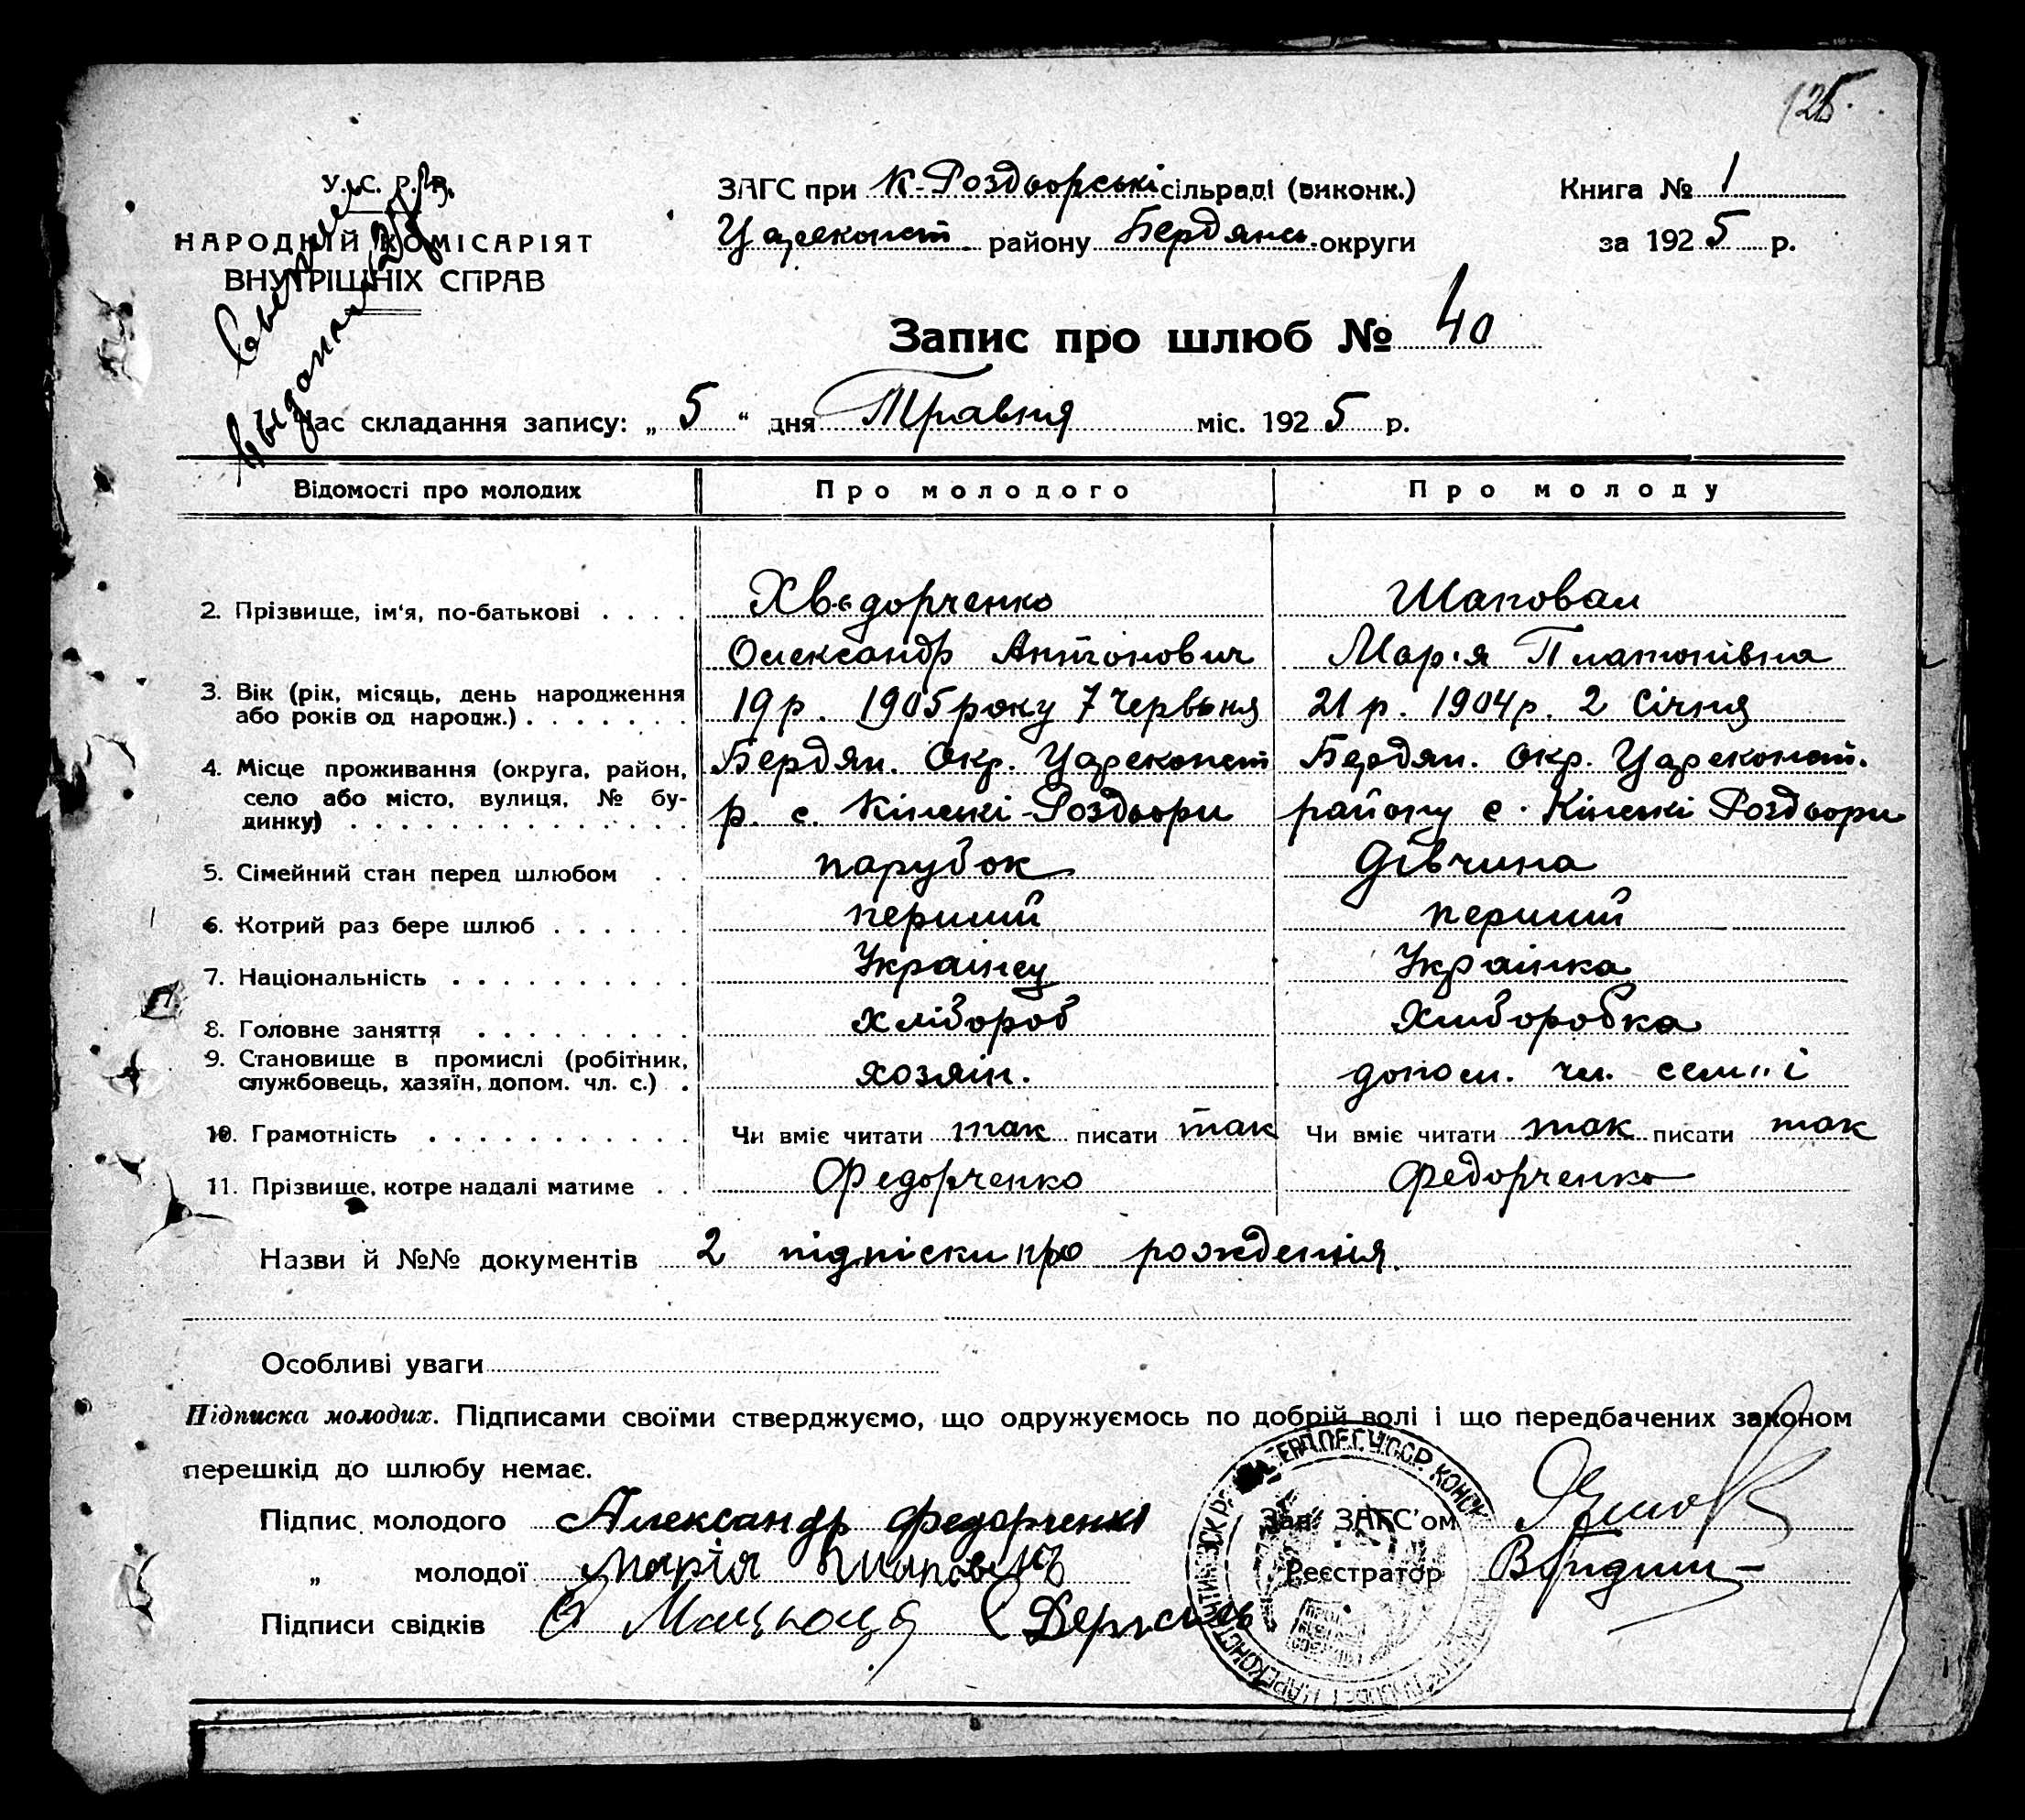 125.
У. С. Р. Р.
НАРОДНІЙ КОМІСАРІЯТ
ВНУТРІШНІХ СПРАВ
ЗАГС при К-Роздьорські сільраді (виконк.)
Цареконст. району Бердянсь. округи
Книга № 1
за 1925 р.
Запис про шлюб № 40
Час складання запису: „ 5 “ дня Травня міс. 1925 р.
Відомості про молодих Про молодого Про молоду
2. Прізвище, ім‘я, по-батькові . . . . Хведорченко Шаповал
Олександр Антонович Марія Платонівна
3. Вік (рік, місяць, день народження або років од народж.) . . . . . . . 19 р. 1905 року 7 Червьня 21 р. 1904 р. 2 Січня
4. Місце проживання (округа, район, Бердян. Окр. Цареконст Бердян. Окр. Цареконст.
село або місто, вулиця, № бу-
динку) . . . . . . . . . . . . . . р. с. Кінські-Роздьори району с. Кінські Роздьори
5. Сімейний стан перед шлюбом . . парубок дівчина
6. Котрий раз бере шлюб . . . . . . перший перший
7. Національність . . . . . . . . . . Українець Українка
8. Головне заняття . . . . . . . . . хлібороб хліборобка
9. Становище в промислі (робітник,
службовець, хазяїн, допом. чл. с.) . хозяін. допом. чл. сем"ї
10. Грамотність . . . . . . . . . . . Чи вміє читати так писати так Чи вміє читати так писати так
11. Прізвище, котре надалі матиме . . Федорченко Федорченко
Назви й №№ документів 2 підпіски про рожденія.
Особливі уваги
Підписка молодих. Підписами своїми стверджуємо, що одружуємось по добрій волі і що передбачених законом
перешкід до шлюбу немає.
Підпис молодого Александр Федорченко Зав. ЗАГС’ом
„ молодої Марія Шаповал Реєстратор
Підписи свідків